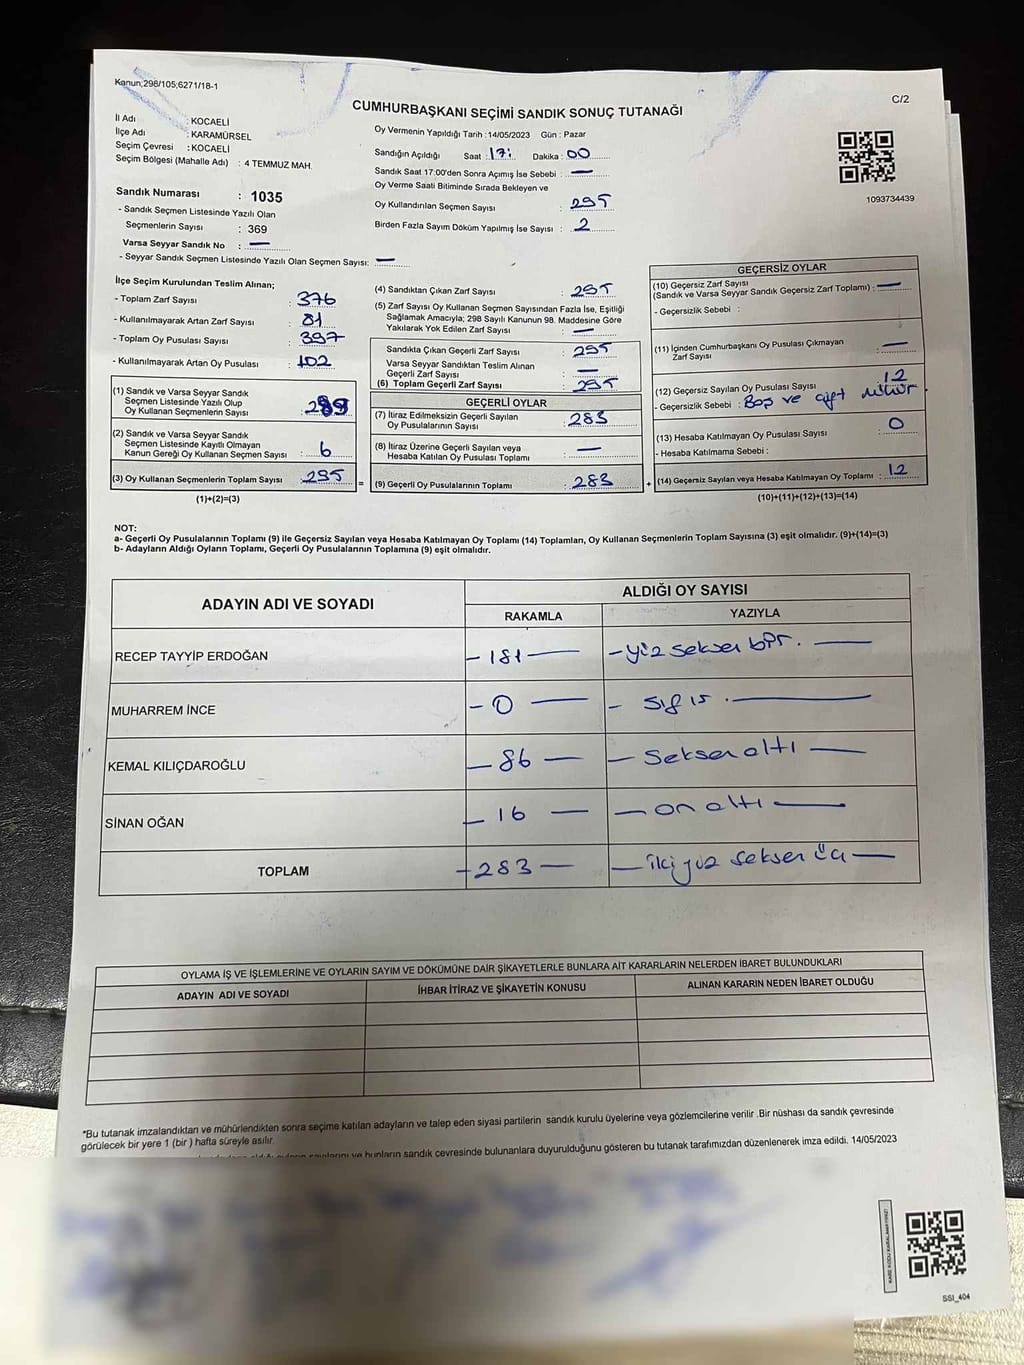 Kanun;298/105;6271/18-1
C/2
CUMHURBAŞKANI SEÇİMİ SANDIK SONUÇ TUTANAĞI
İl Adı : KOCAELİ
İlçe Adı : KARAMÜRSEL
Seçim Çevresi : KOCAELİ
Seçim Bölgesi (Mahalle Adı) : 4 TEMMUZ MAH.
Sandık Numarası : 1035
- Sandık Seçmen Listesinde Yazılı Olan
Seçmenlerin Sayısı : 369
Varsa Seyyar Sandık No : —
- Seyyar Sandık Seçmen Listesinde Yazılı Olan Seçmen Sayısı: —
Oy Vermenin Yapıldığı Tarih : 14/05/2023 Gün : Pazar
Sandığın Açıldığı Saat : 17: Dakika : 00
Sandık Saat 17:00'den Sonra Açımış İse Sebebi : —
Oy Verme Saati Bitiminde Sırada Bekleyen ve
Oy Kullandırılan Seçmen Sayısı : 295
Birden Fazla Sayım Döküm Yapılmış İse Sayısı : 2
1093734439
İlçe Seçim Kurulundan Teslim Alınan;
- Toplam Zarf Sayısı : 376
- Kullanılmayarak Artan Zarf Sayısı : 81
- Toplam Oy Pusulası Sayısı : 397
- Kullanılmayarak Artan Oy Pusulası : 102
(1) Sandık ve Varsa Seyyar Sandık
Seçmen Listesinde Yazılı Olup
Oy Kullanan Seçmenlerin Sayısı : 289
(2) Sandık ve Varsa Seyyar Sandık
Seçmen Listesinde Kayıtlı Olmayan
Kanun Gereği Oy Kullanan Seçmen Sayısı : 6
(3) Oy Kullanan Seçmenlerin Toplam Sayısı : 295 =
(1)+(2)=(3)
(4) Sandıktan Çıkan Zarf Sayısı : 295
(5) Zarf Sayısı Oy Kullanan Seçmen Sayısından Fazla İse, Eşitliği
Sağlamak Amacıyla; 298 Sayılı Kanunun 98. Maddesine Göre
Yakılarak Yok Edilen Zarf Sayısı : —
Sandıkta Çıkan Geçerli Zarf Sayısı : 295
Varsa Seyyar Sandıktan Teslim Alınan
Geçerli Zarf Sayısı : —
(6) Toplam Geçerli Zarf Sayısı : 295
GEÇERLİ OYLAR
(7) İtiraz Edilmeksizin Geçerli Sayılan
Oy Pusulalarının Sayısı : 283
(8) İtiraz Üzerine Geçerli Sayılan veya
Hesaba Katılan Oy Pusulası Toplamı : —
(9) Geçerli Oy Pusulalarının Toplamı : 283 +
GEÇERSİZ OYLAR
(10) Geçersiz Zarf Sayısı
(Sandık ve Varsa Seyyar Sandık Geçersiz Zarf Toplamı) : —
- Geçersizlik Sebebi :
(11) İçinden Cumhurbaşkanı Oy Pusulası Çıkmayan
Zarf Sayısı : —
(12) Geçersiz Sayılan Oy Pusulası Sayısı : 12
- Geçersizlik Sebebi : Boş ve çift mühür
(13) Hesaba Katılmayan Oy Pusulası Sayısı : 0
- Hesaba Katılmama Sebebi :
(14) Geçersiz Sayılan veya Hesaba Katılmayan Oy Toplamı : 12
(10)+(11)+(12)+(13)=(14)
NOT:
a- Geçerli Oy Pusulalarının Toplamı (9) ile Geçersiz Sayılan veya Hesaba Katılmayan Oy Toplamı (14) Toplamları, Oy Kullanan Seçmenlerin Toplam Sayısına (3) eşit olmalıdır. (9)+(14)=(3)
b- Adayların Aldığı Oyların Toplamı, Geçerli Oy Pusulalarının Toplamına (9) eşit olmalıdır.
ADAYIN ADI VE SOYADI
ALDIĞI OY SAYISI
RAKAMLA YAZIYLA
RECEP TAYYİP ERDOĞAN - 181 — - yüz seksen bir. —
MUHARREM İNCE - 0 — - sıfır. —
KEMAL KILIÇDAROĞLU - 86 — - seksen altı —
SİNAN OĞAN - 16 — - on altı —
TOPLAM - 283 — - iki yüz seksen üç —
OYLAMA İŞ VE İŞLEMLERİNE VE OYLARIN SAYIM VE DÖKÜMÜNE DAİR ŞİKAYETLERLE BUNLARA AİT KARARLARIN NELERDEN İBARET BULUNDUKLARI
ADAYIN ADI VE SOYADI İHBAR İTİRAZ VE ŞİKAYETİN KONUSU ALINAN KARARIN NEDEN İBARET OLDUĞU
*Bu tutanak imzalandıktan ve mühürlendikten sonra seçime katılan adayların ve talep eden siyasi partilerin sandık kurulu üyelerine veya gözlemcilerine verilir .Bir nüshası da sandık çevresinde
görülecek bir yere 1 (bir ) hafta süreyle asılır.
sayılarını ve bunların sandık çevresinde bulunanlara duyurulduğunu gösteren bu tutanak tarafımızdan düzenlenerek imza edildi. 14/05/2023
KARE KODU KARALAMAYINIZ!
SSI_404